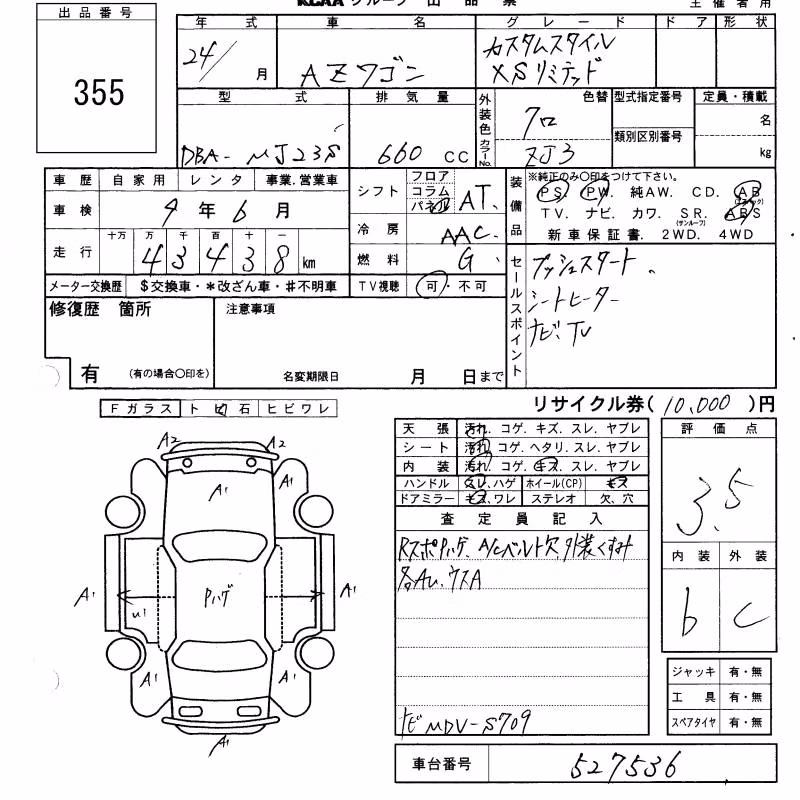 KCAA グループ 出 品 票
主 催 者 用
出品番号
355
年 式
24/ 月
車 名
AZワゴン
グレード
カスタムスタイル
XSリミテッド
ドア 形状
型 式
DBA-MJ23S
排気量
660 cc
外装色 カラーNo.
色替
クロ
ZJ3
型式指定番号
類別区別番号
定員・積載
名
kg
車歴 自家用 レンタ 事業.営業車
車検 9 年 6 月
走行 十万 万 千 百 十 一
4 3 4 3 8 km
メーター交換歴 $交換車・*改ざん車・#不明車
シフト フロア コラム パネル AT.
冷房 AAC.
燃料 G.
TV視聴 可・不可
装備品
※純正のみ〇印をつけて下さい。
PS. PW. 純AW. CD. AB (エアバック)
TV. ナビ. カワ. SR. (サンルーフ) ABS
新車保証書. 2WD. 4WD
セールスポイント
プッシュスタート.
シートヒーター
ナビ. TV
修復歴 箇所
有 (有の場合〇印を)
注意事項
名変期限日 月 日まで
リサイクル券( 10,000 )円
Fガラス トビ石 ヒビワレ
天張 汚れ. コゲ. キズ. スレ. ヤブレ
シート 汚れ. コゲ. ヘタリ. スレ. ヤブレ
内装 汚れ. コゲ. キズ. スレ. ヤブレ
ハンドル スレ.ハゲ ホイール(CP) キズ
ドアミラー キズ.ワレ ステレオ 欠.穴
査定員記入
Rスポ Pハゲ. A/Cベルト欠. 外装くすみ
各AU. ウスA
ナビ MDV-S709
評価点
3.5
内装 外装
b c
ジャッキ 有・無
工具 有・無
スペアタイヤ 有・無
車台番号 527536
A2 A2
A1
A1 A1
A1 Pハゲ A1
U1
A1 A1
A1